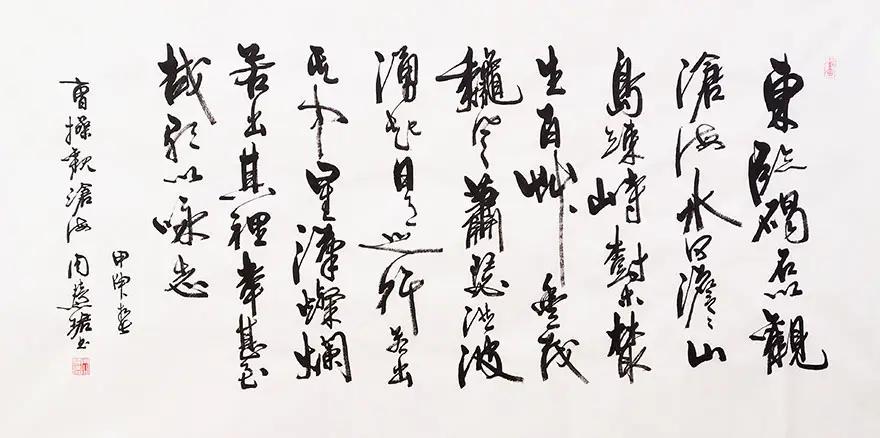 東臨碣石以觀
滄海水何澹〻山
島竦峙樹木叢
生百艸豐茂
龝風蕭瑟洪波
湧起日月之行若出
其中星漢燦爛
若出其裡幸甚至
哉歌以詠志
甲申
曹操觀滄海周慧珺书